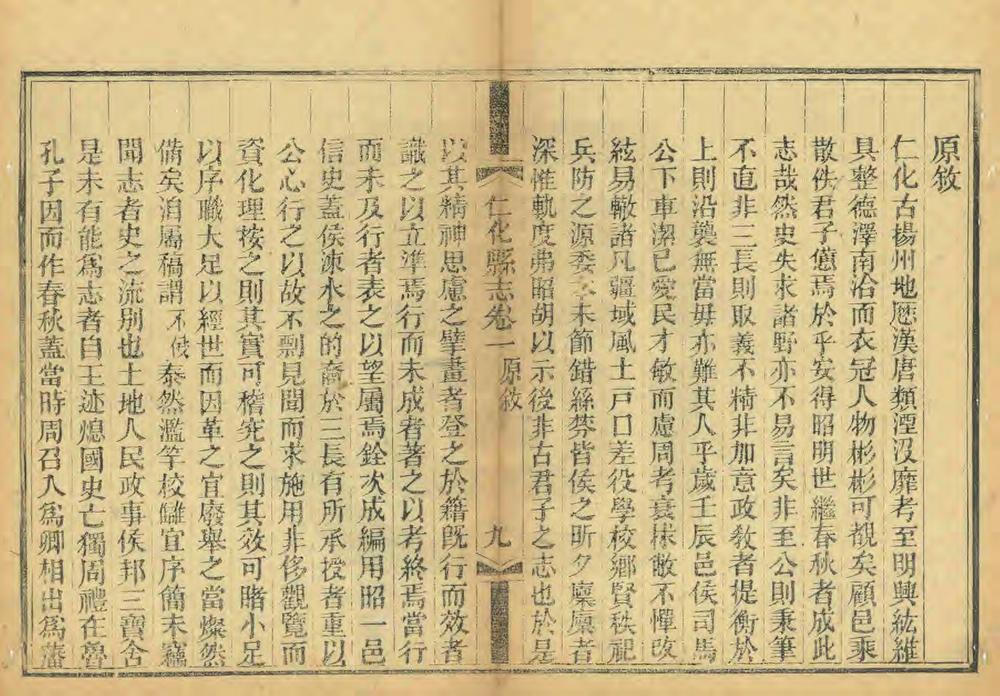 原敘
仁化古揚州地歷漢唐類湮沒靡考至明興紘維
具整德澤南洽而衣冠人物彬彬可覩矣顧邑乘
散佚君子憊焉於乎安得昭明世繼春秋者成此
志哉然史失求諸野亦不易言矣非至公則秉筆
不直非三長則取義不精非加意政敎者提衡於
上則沿襲無當毋亦難其人乎歲壬辰邑侯司馬
公下車潔已愛民才敏而慮周考衰核敝不憚改
絃易轍諸凡疆域風土戸口差役學校鄉賢秩祀
兵防之源委本末節錯絲棼皆侯之昕夕廩廩者
深惟軌度弗昭胡以示後非古君子之志也於是
仁化縣志卷一 原敘 九
以其精神思慮之擘畫者登之於籍旣行而效者
識之以立準焉行而未成者著之以考終焉當行
而未及行者表之以望屬焉銓次成編用昭一邑
信史蓋侯涑水之的裔於三長有所承授者重以
公心行之以故不剽見聞而求施用非侈觀覽而
資化理按之則其實可稽究之則其效可睹小足
以序職大足以經世而因革之宜廢舉之當燦然
備矣濳屬稿謂不佞泰然濫竽校讎宜序簡末竊
聞志者史之流別也土地人民政事侯邦三寶舍
是未有能爲志者自王迹熄國史亡獨周禮在魯
孔子因而作春秋蓋當時周召入爲卿相出爲藩